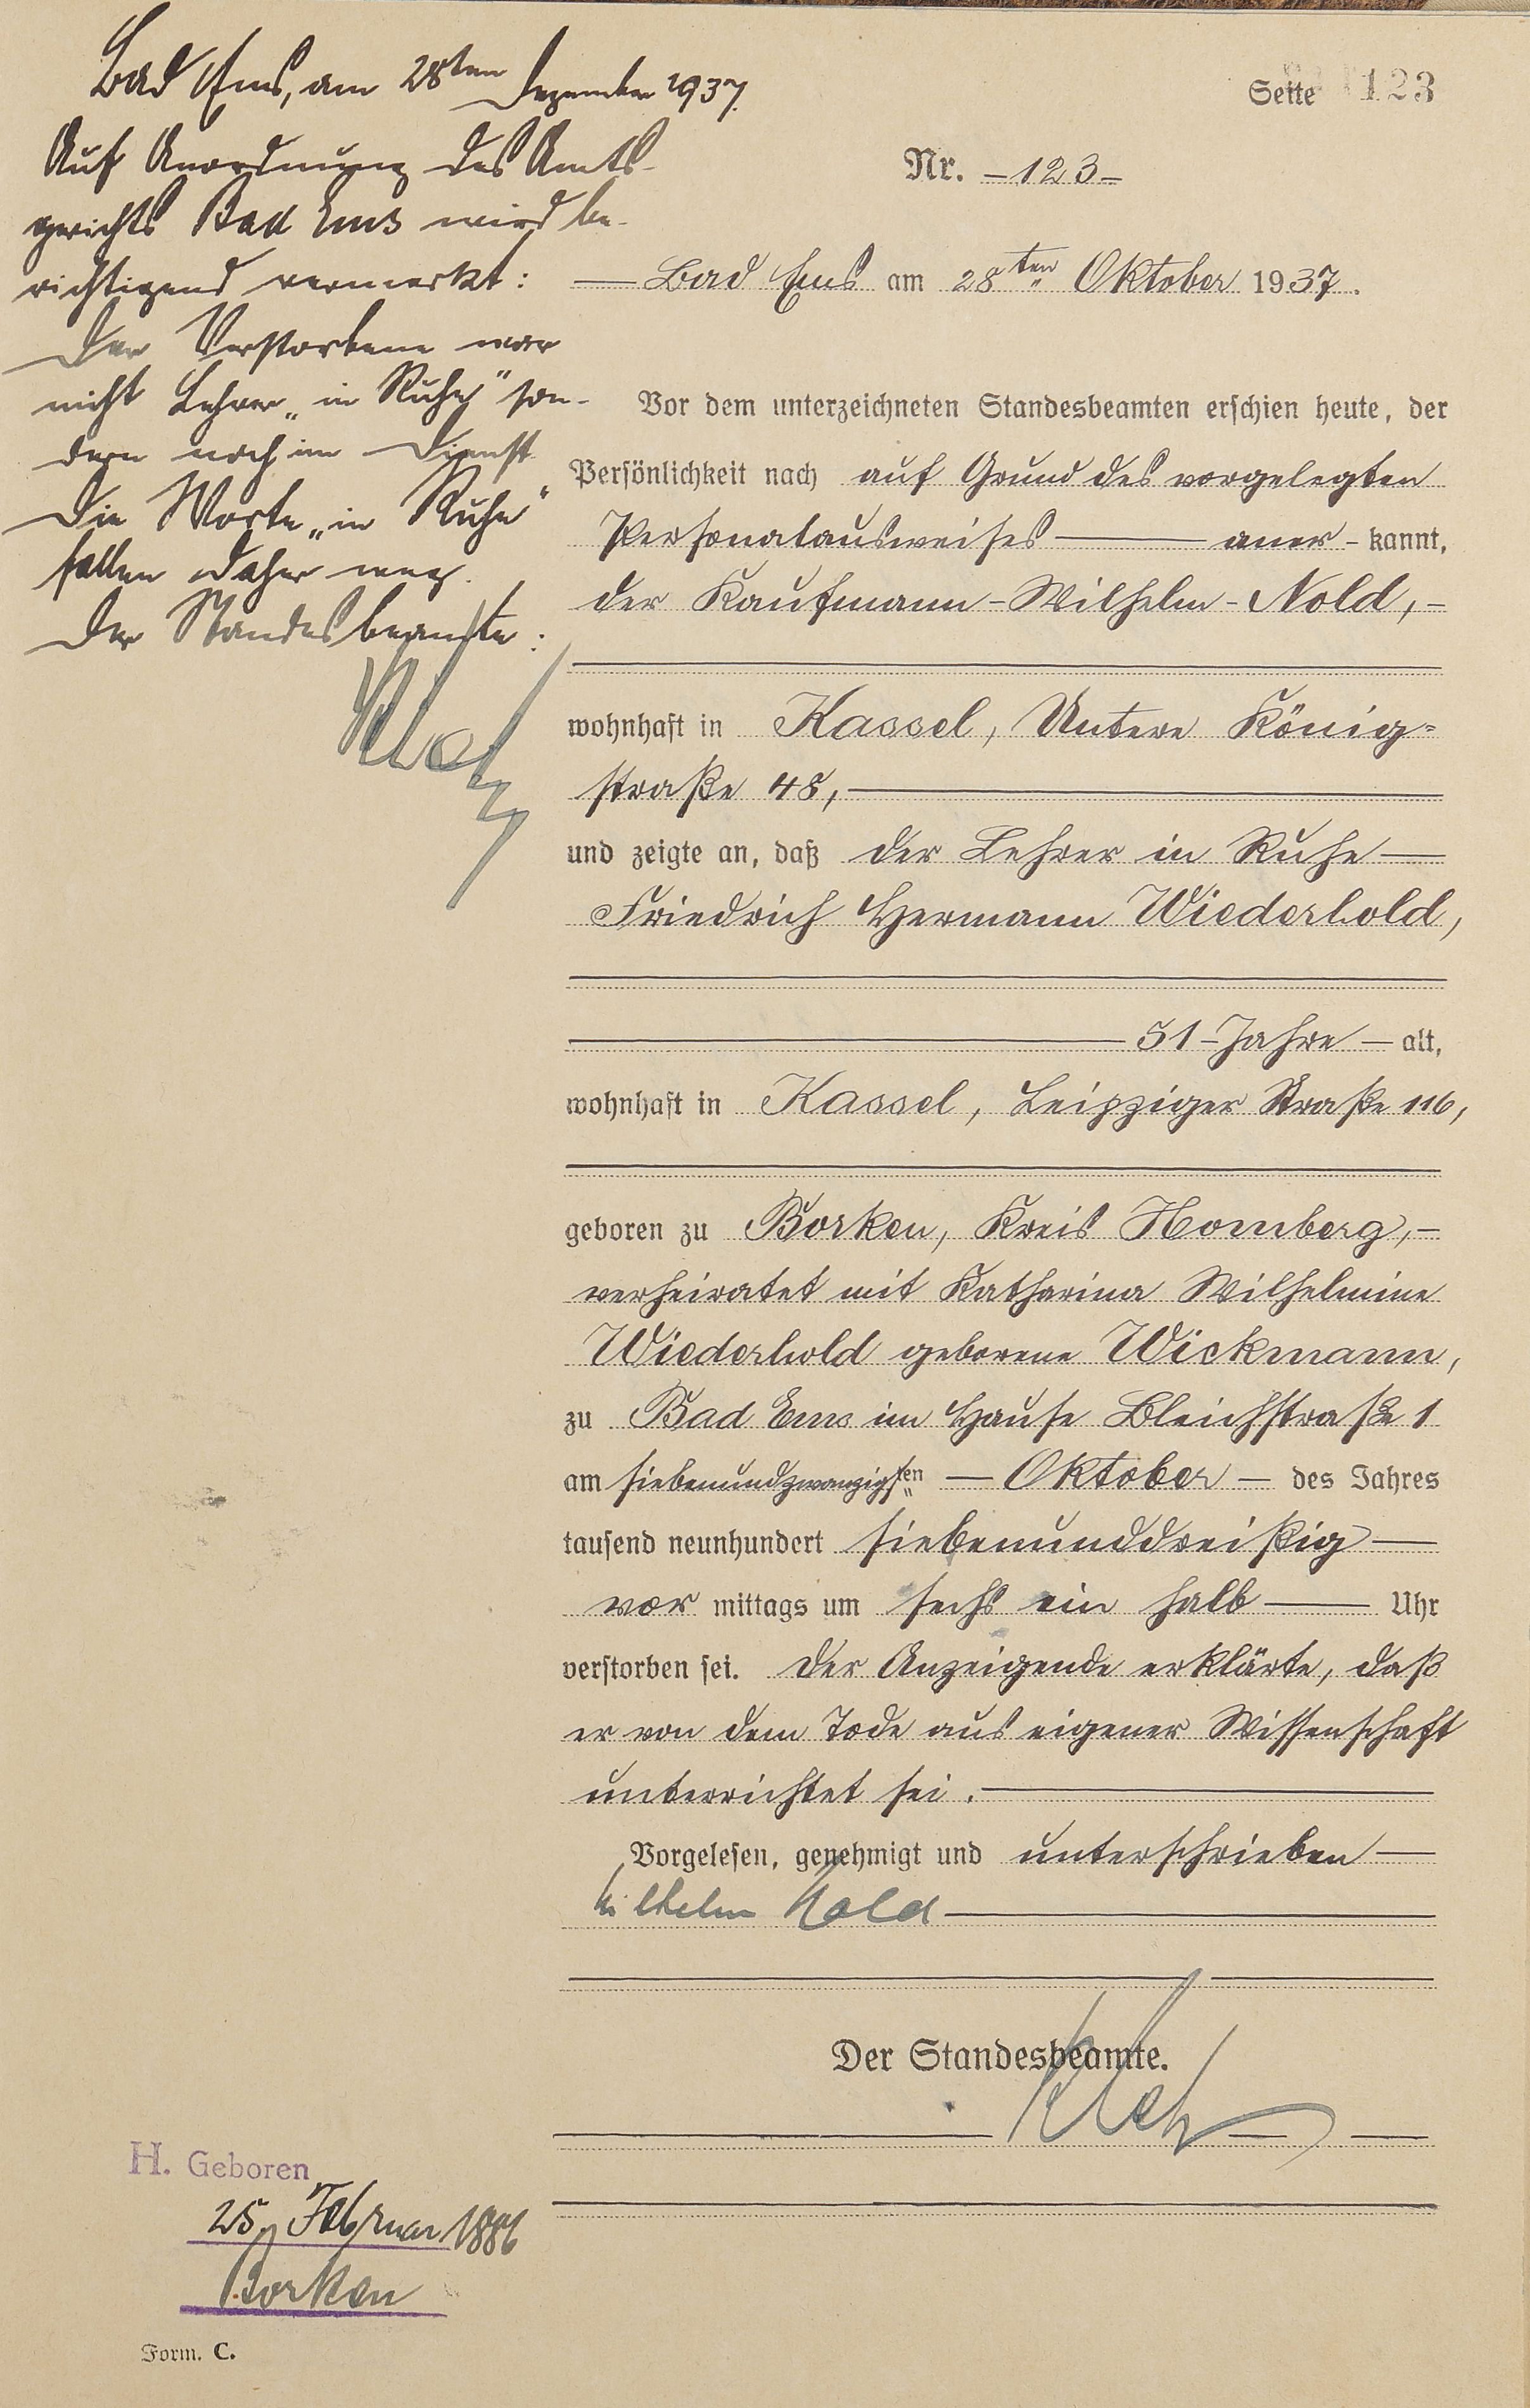 Bad Ems, am 28ten Dezember 1937.
Auf Anordnung des Amts-
gerichts Bad Ems wird be-
richtigend vermerkt:
Der Verstorbene war
nicht Lehrer „in Ruhe“ son-
dern noch im Dienst
Die Worte „in Ruhe“
fallen daher weg.
Der Standesbeamte:
Seite 123
Nr. -123-
Bad Ems am 28ten Oktober 1937.
Vor dem unterzeichneten Standesbeamten erschien heute, der
Persönlichkeit nach auf Grund des vorgelegten
Personalausweises — aner-kannt,
der Kaufmann-Wilhelm-Nold,-
wohnhaft in Kassel, Untere König=
straße 48,
und zeigte an, daß der Lehrer in Ruhe
Friedrich Hermann Wiederhold,
51-Jahre — alt,
wohnhaft in Kassel, Leipziger Straße 116,
geboren zu Borken, Kreis Homberg,-
verheiratet mit Katharina Wilhelmine
Wiederhold geborene Wickmann,
zu Bad Ems im Hause Bleichstraße 1
am siebenundzwanzigsten — Oktober — des Jahres
tausend neunhundert siebenunddreißig
vor mittags um sechs ein halb — Uhr
verstorben sei. Der Anzeigende erklärte, daß
er von dem Tode aus eigener Wissenschaft
unterrichtet sei.
Vorgelesen, genehmigt und unterschrieben
Wilhelm Nold
Der Standesbeamte.
H. Geboren
25. Februar 1886
Borken
Form. C.